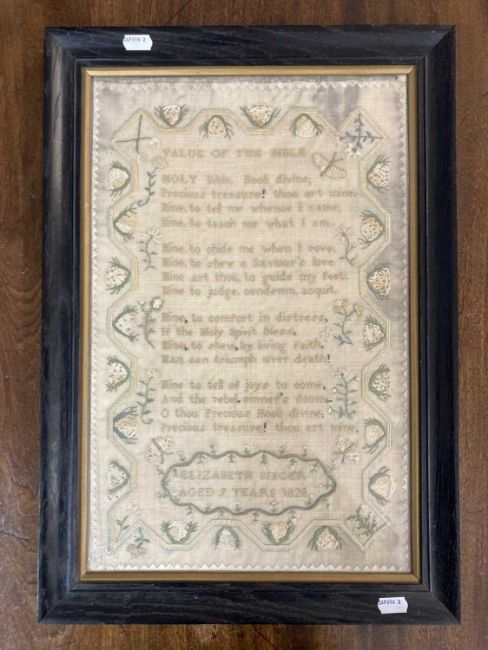 VALUE OF THE BIBLE
HOLY Bible, Book divine,
Precious treasure! thou art mine.
Mine, to tell me whence I came,
Mine, to teach me what I am.
Mine, to chide me when I rove,
Mine, to shew a Saviour's love
Mine art thou, to guide my feet
Mine to judge, condemn, acquit.
Mine, to comfort in distress,
If the Holy Spirit bless.
Mine, to shew by living faith,
Man can triumph over death!
Mine to tell of joys to come,
And the rebel sinner's doom,
O thou Precious Book divine,
Precious treasure! thou art mine.
ELIZABETH
AGED 9 YEARS 182